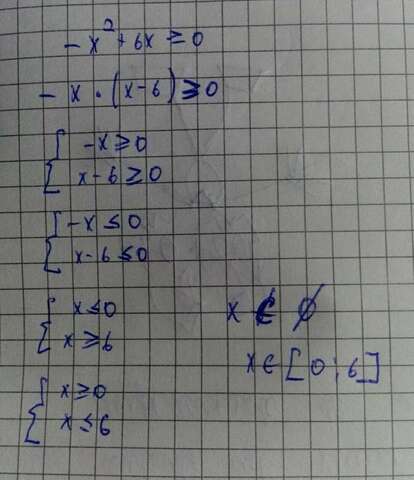 -x²+6x≥0
-x·(x-6)≥0
{ -x≥0
x-6≥0
{ -x≤0
x-6≤0
{ x≤0
x≥6
x ∈ ∅
{ x≥0
x≤6
x∈[0;6]